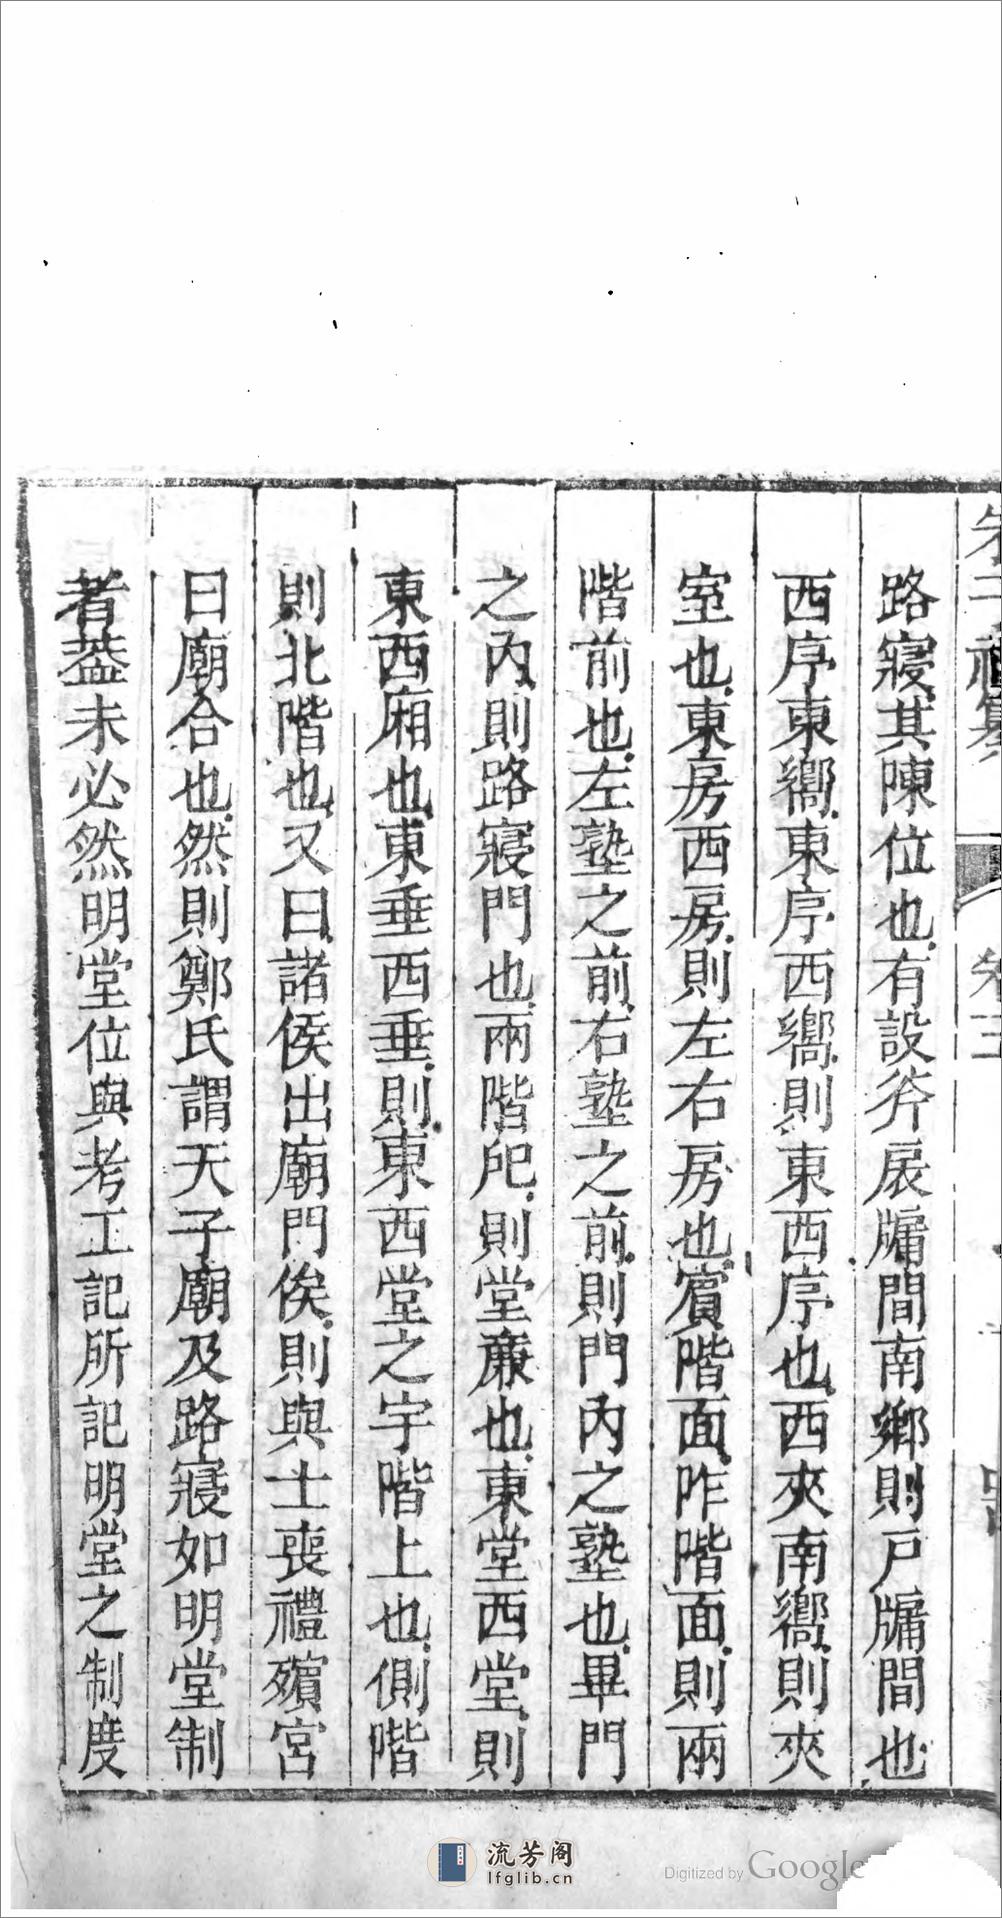 路寢其陳位也有設斧扆牖間南鄉則戶牖間也
西序東嚮東序西嚮則東西序也西夾南嚮則夾
室也東房西房則左右房也賓階面阼階面則兩
階前也左塾之前右塾之前則門內之塾也畢門
之內則路寢門也兩階戺則堂廉也東堂西堂則
東西廂也東垂西垂則東西堂之宇階上也側階
則北階也又曰諸侯出廟門俟則與士喪禮殯宮
曰廟合也然則鄭氏謂天子廟及路寢如明堂制
者葢未必然明堂位與考工記所記明堂之制度
流芳阁
lfglib.cn
Digitized by Google